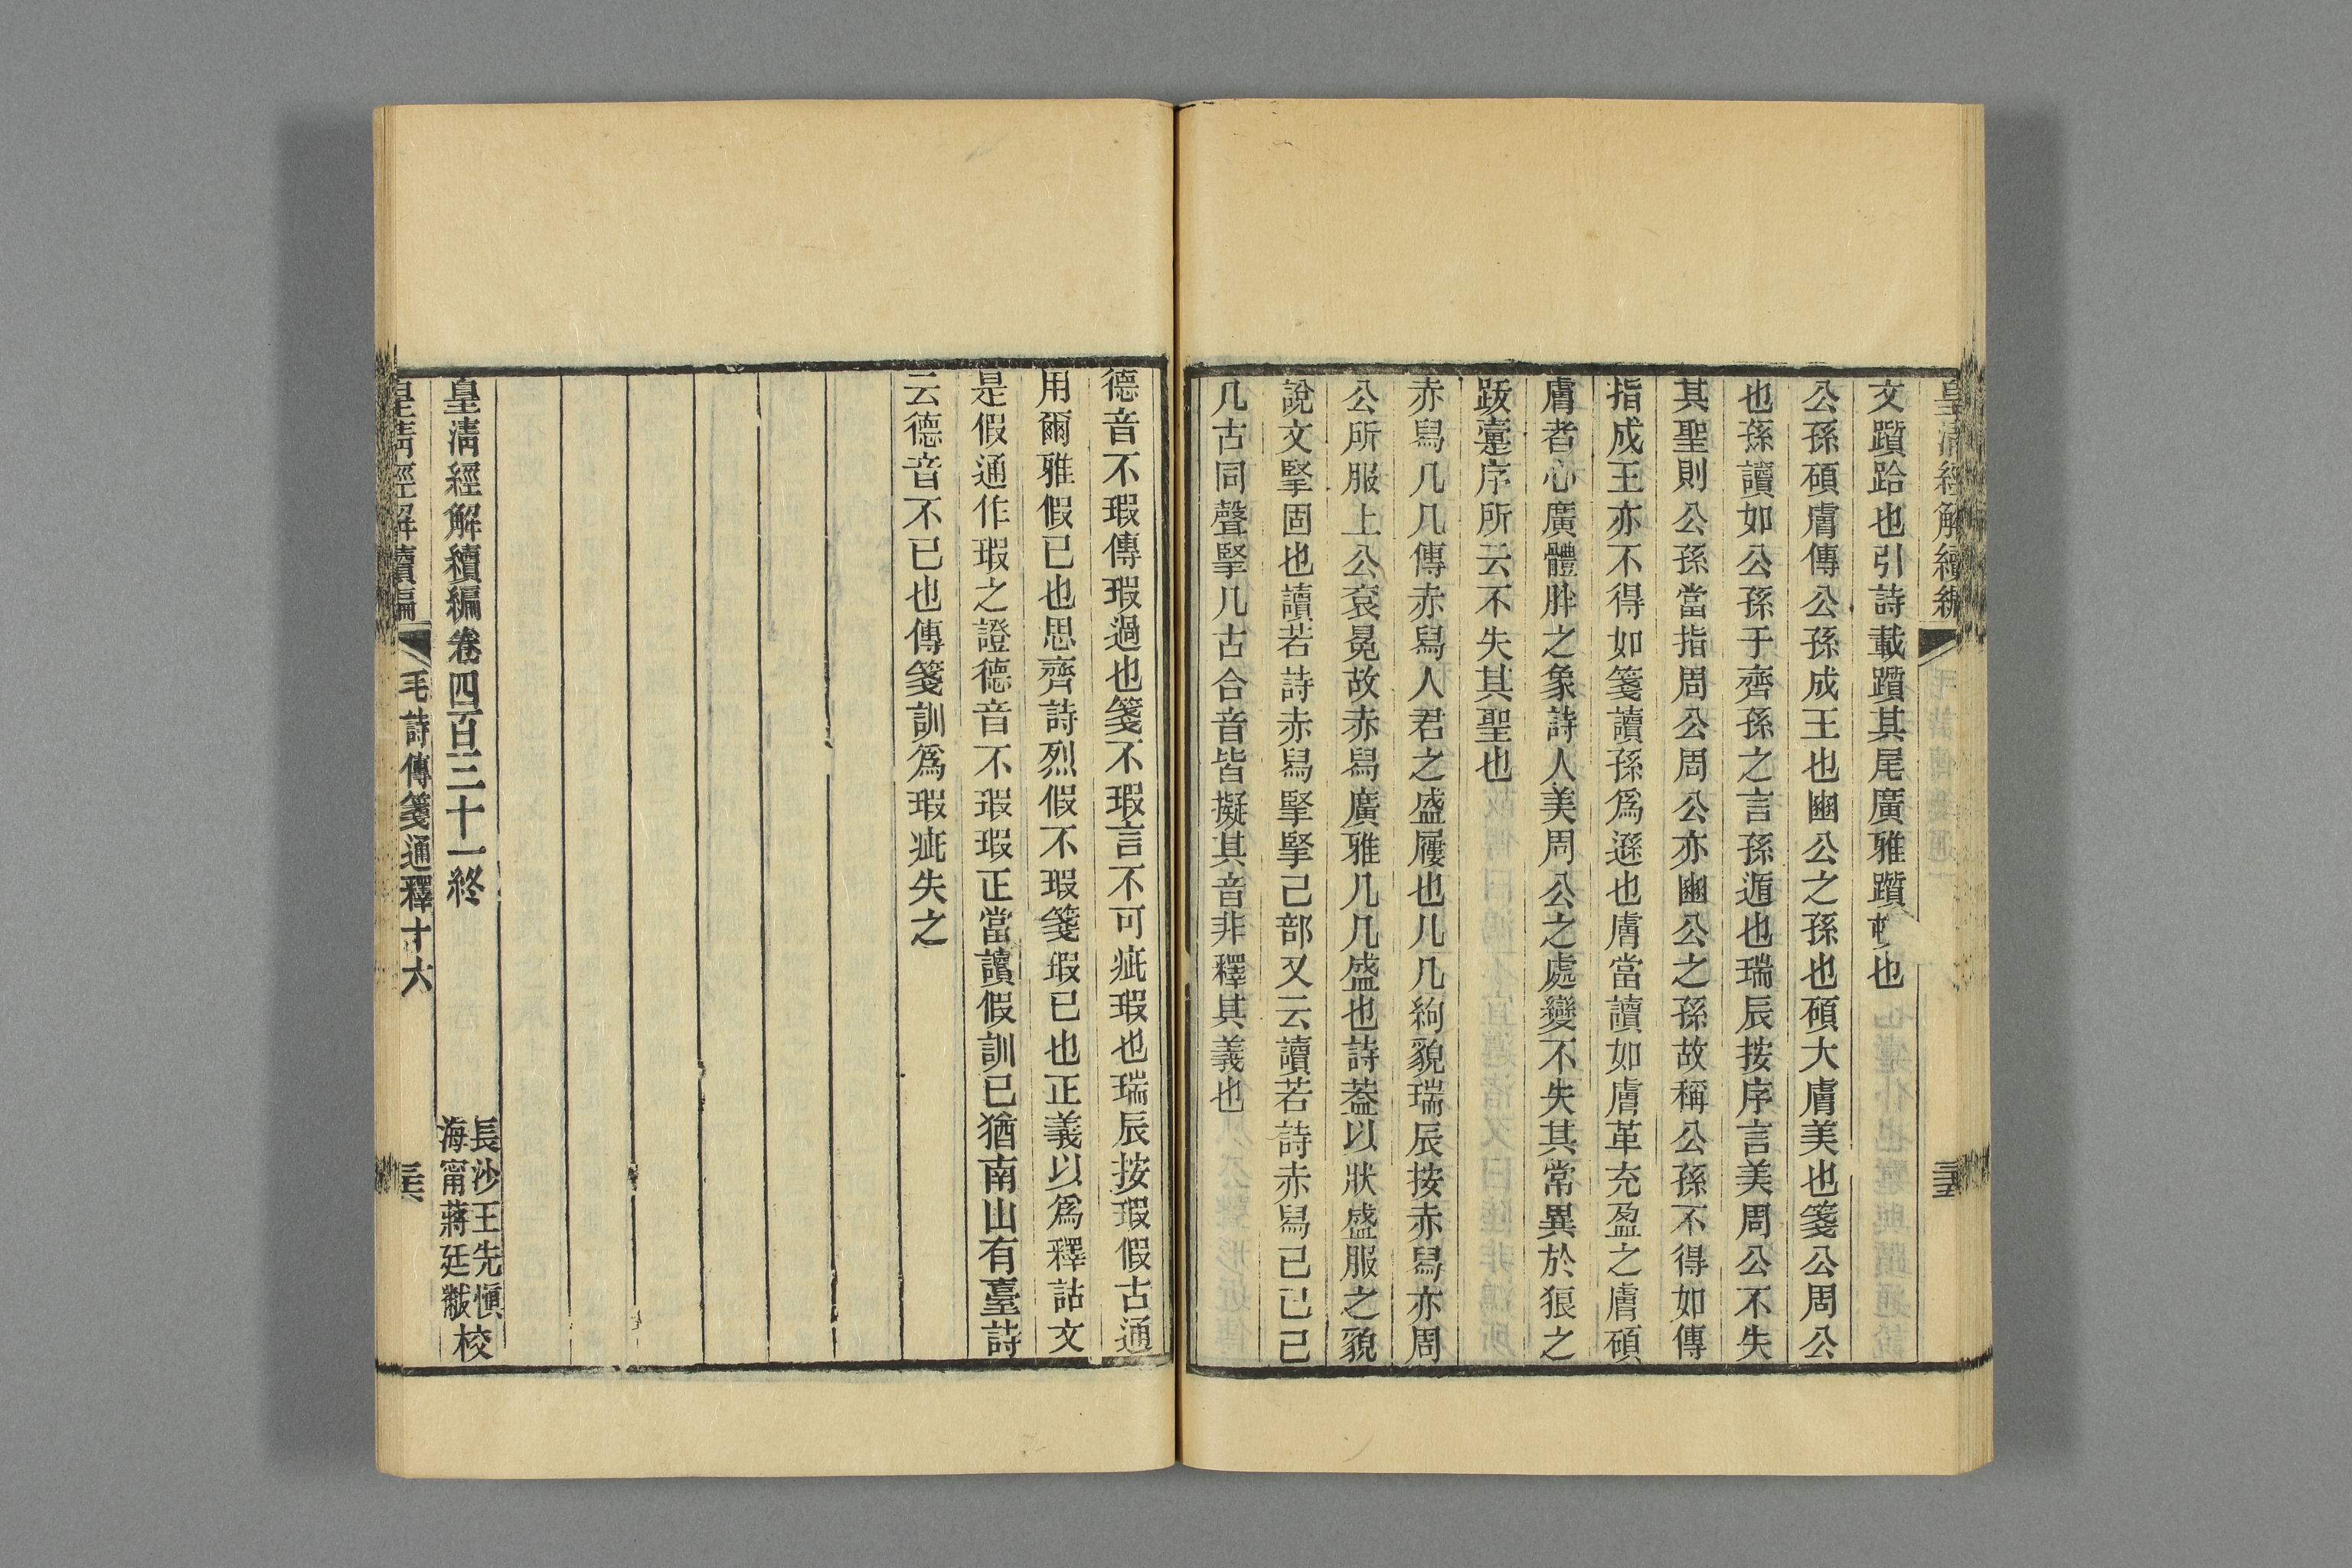 皇清經解續編
文躓跲也引詩載躓其尾廣雅躓頓也
公孫碩膚傳公孫成王也豳公之孫也碩大膚美也箋公周公
也孫讀如公孫于齊孫之言孫遁也瑞辰按序言美周公不失
其聖則公孫當指周公周公亦豳公之孫故稱公孫不得如傳
指成王亦不得如箋讀孫爲遜也膚當讀如膚革充盈之膚碩
膚者心廣體胖之象詩人美周公之處變不失其常異於狼之
跋疐序所云不失其聖也
赤舄几几傳赤舄人君之盛屨也几几絇貌瑞辰按赤舄亦周
公所服上公袞冕故赤舄廣雅几几盛也詩葢以狀盛服之貌
說文掔固也讀若詩赤舄掔掔己部又云讀若詩赤舄己己己
几古同聲掔几古合音皆擬其音非釋其義也
德音不瑕傳瑕過也箋不瑕言不可疵瑕也瑞辰按瑕假古通
用爾雅假已也思齊詩烈假不瑕箋瑕已也正義以爲釋詁文
是假通作瑕之證德音不瑕瑕正當讀假訓已猶南山有臺詩
云德音不已也傳箋訓爲瑕疵失之
皇清經解續編卷四百三十一終
長沙王先愼
海甯蔣廷黻
校
皇清經解續編
毛詩傳箋通釋十六